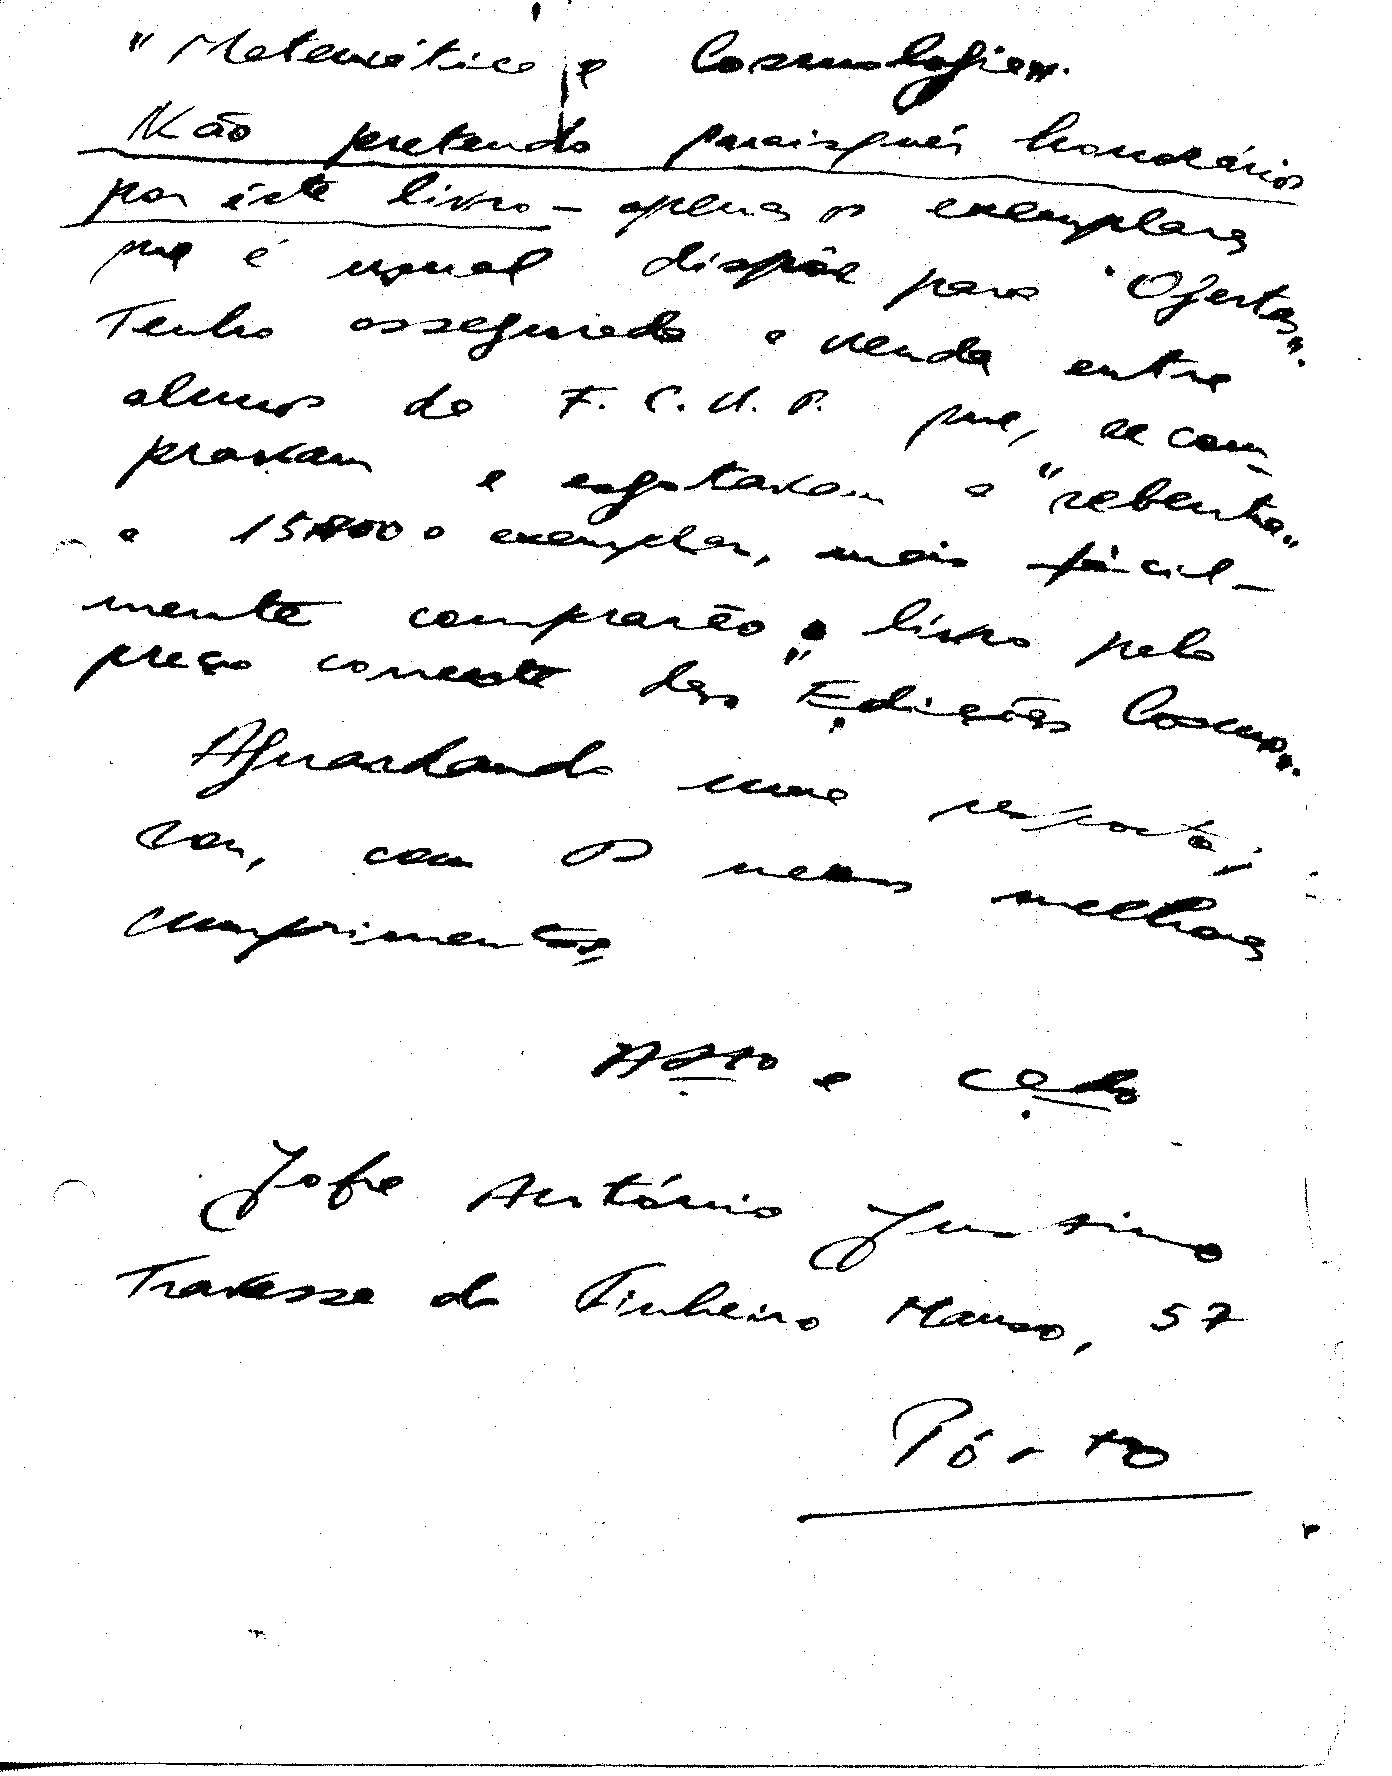 "Matemática e Cosmologia".
Não pretendo quaisquer honorários
por êste livro — apenas os exemplares
que é usual dispôr para "Ofertas".
Tenho assegurada a venda entre
alunos da F. C. U. P. que, se com-
pravam e esgotavam a "sebenta"
a 15$00 o exemplar, mais fácil-
mente comprarão o livro pelo
preço corrente das "Edições Cosmos".
Aguardando uma resposta,
sou, com os meus melhores
cumprimentos
Atto e
Jofre António Justino
Travessa do Pinheiro Manso, 57
Pôrto